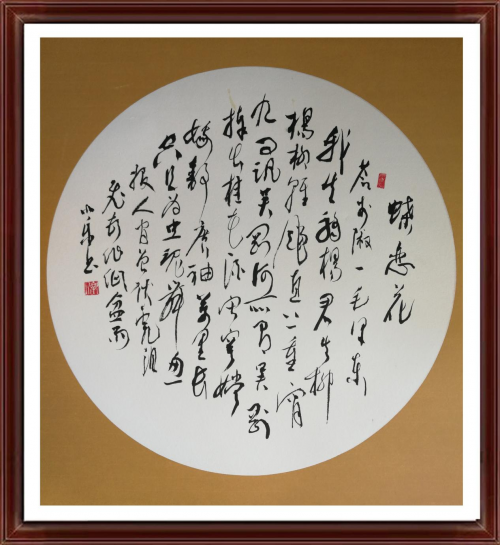 蝶恋花
答李淑一 毛泽东
我失骄杨君失柳
杨柳轻飏直上重霄
九问讯吴刚何所有吴刚
捧出桂花酒寂寞嫦
娥舒广袖万里长
空且为忠魂舞忽
报人间曾伏虎泪
飞顿作倾盆雨